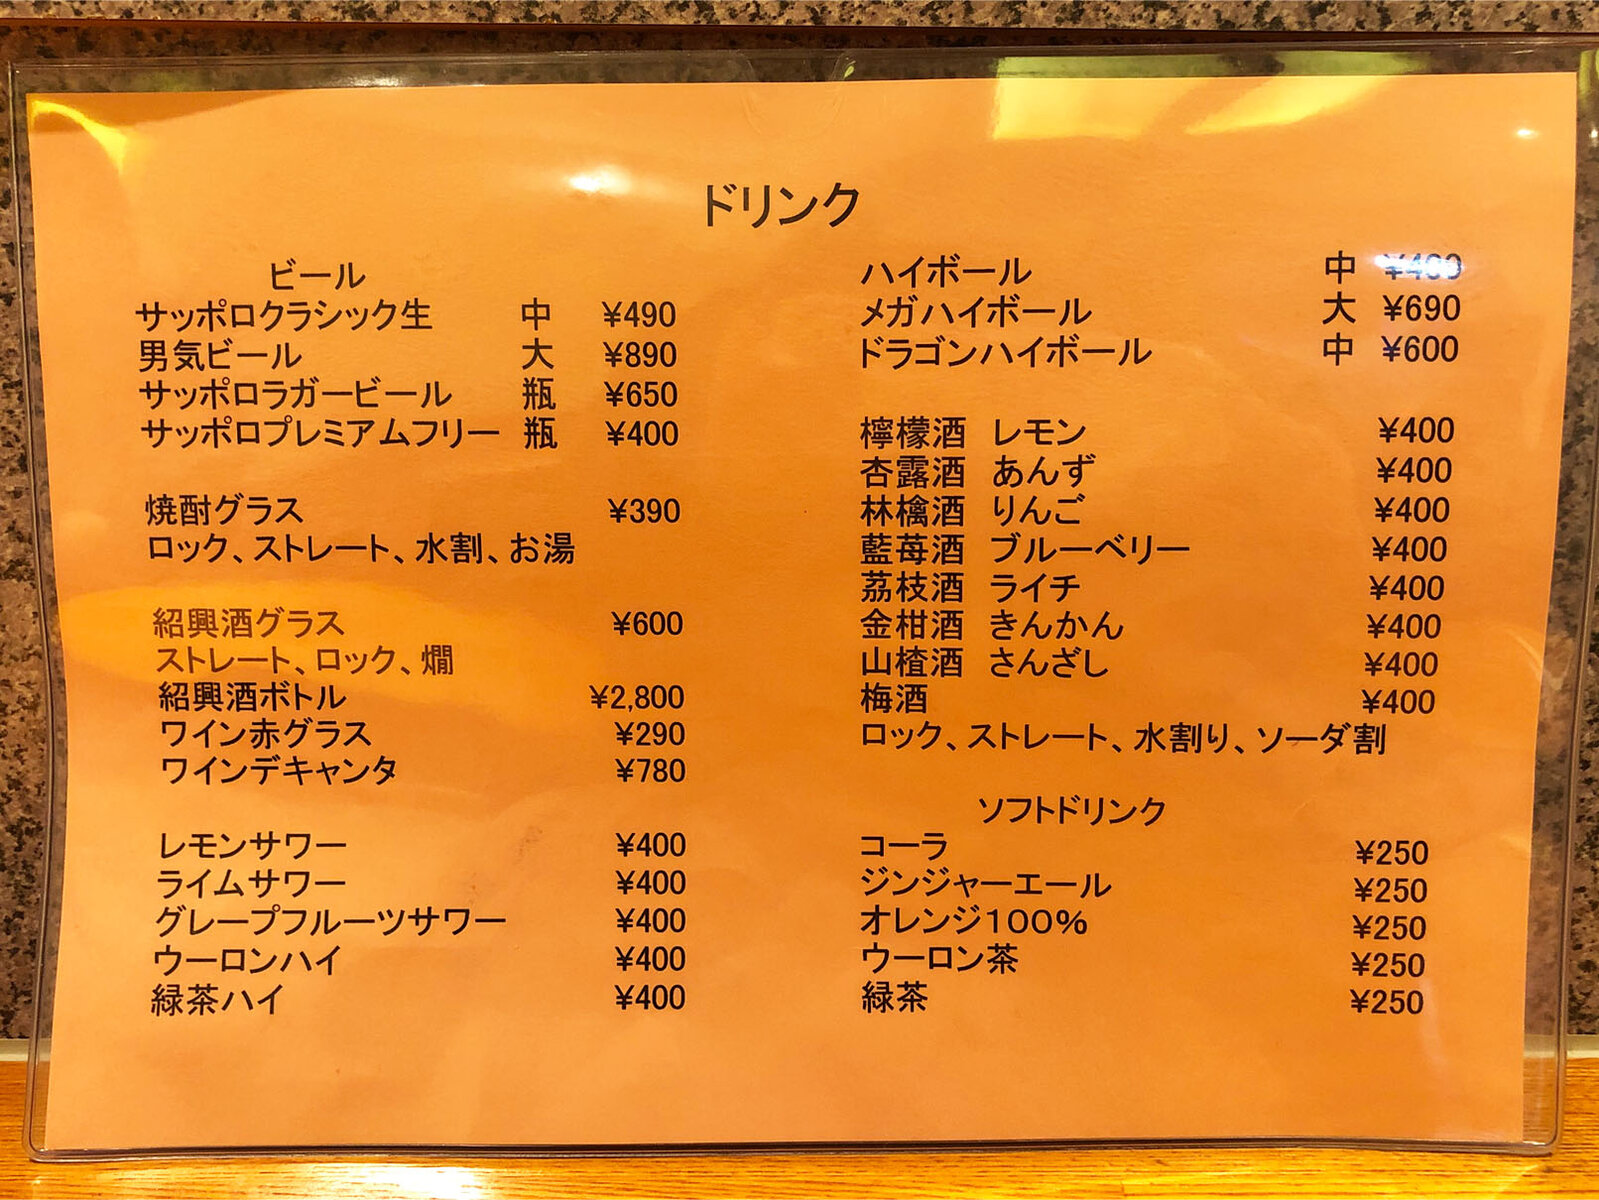 ドリンク
ビール
サッポロクラシック生 中 ¥490
男気ビール 大 ¥890
サッポロラガービール 瓶 ¥650
サッポロプレミアムフリー 瓶 ¥400
焼酎グラス ¥390
ロック、ストレート、水割、お湯
紹興酒グラス ¥600
ストレート、ロック、燗
紹興酒ボトル ¥2,800
ワイン赤グラス ¥290
ワインデキャンタ ¥780
レモンサワー ¥400
ライムサワー ¥400
グレープフルーツサワー ¥400
ウーロンハイ ¥400
緑茶ハイ ¥400
ハイボール 中
メガハイボール 大 ¥690
ドラゴンハイボール 中 ¥600
檸檬酒 レモン ¥400
杏露酒 あんず ¥400
林檎酒 りんご ¥400
藍苺酒 ブルーベリー ¥400
茘枝酒 ライチ ¥400
金柑酒 きんかん ¥400
山楂酒 さんざし ¥400
梅酒 ¥400
ロック、ストレート、水割り、ソーダ割
ソフトドリンク
コーラ ¥250
ジンジャーエール ¥250
オレンジ100% ¥250
ウーロン茶 ¥250
緑茶 ¥250